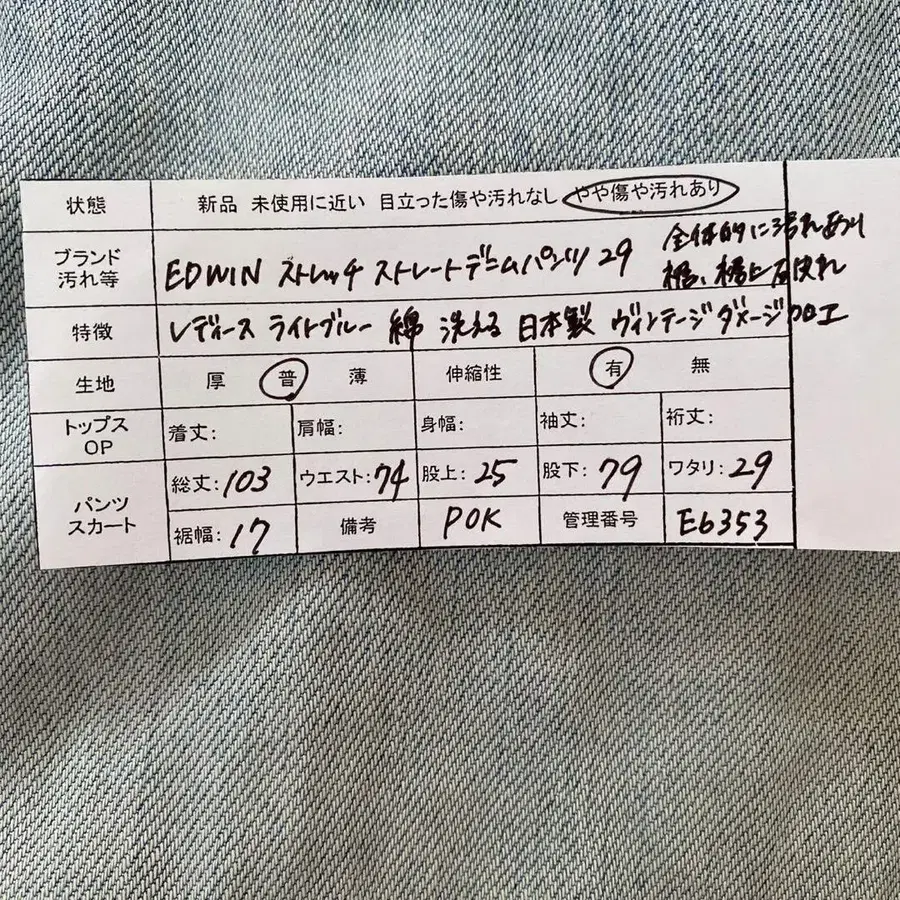 状態 新品 未使用に近い 目立った傷や汚れなし やや傷や汚れあり
ブランド 汚れ等 EDWIN ストレッチ ストレートデニムパンツ 29 全体的に汚れあり
裾、
特徴 レディース ライトブルー 綿 洗える 日本製 ヴィンテージダメージ加工
生地 厚 普 薄 伸縮性 有 無
トップス OP 着丈: 肩幅: 身幅: 袖丈: 裄丈:
パンツ スカート 総丈:103 ウエスト:74 股上:25 股下:79 ワタリ:29
裾幅:17 備考 POK 管理番号 E6353